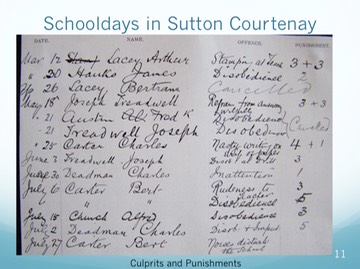 Schooldays in Sutton Courtenay
DATE. NAME. OFFENCE. PUNISHMENT.
Mar 12 Lacey Arthur Stamping at Time 3 + 3
" 20 Hawks James Disobedience 2
26 Lacey Bertram Cancelled
May 18 Joseph Treadwell Refrain from answering 3 + 3
- 21 Austin Fred K Disobedience
- 21 Treadwell Joseph Disobed
- 28 Carter Charles Nasty writing on 4 + 1
of paper
June 3 Treadwell Joseph Disobt at Drill 3
June 30 Deadman Charles Inattention 1
July 6 Carter Bert Rudeness to 3
Teacher
" " Disobedience 5
July 15 Church Alfred Disobedience 3
July 2 Deadman Charles Disob + 5
July 27 Carter Bert Noises disturb
the School
11
Culprits and Punishments